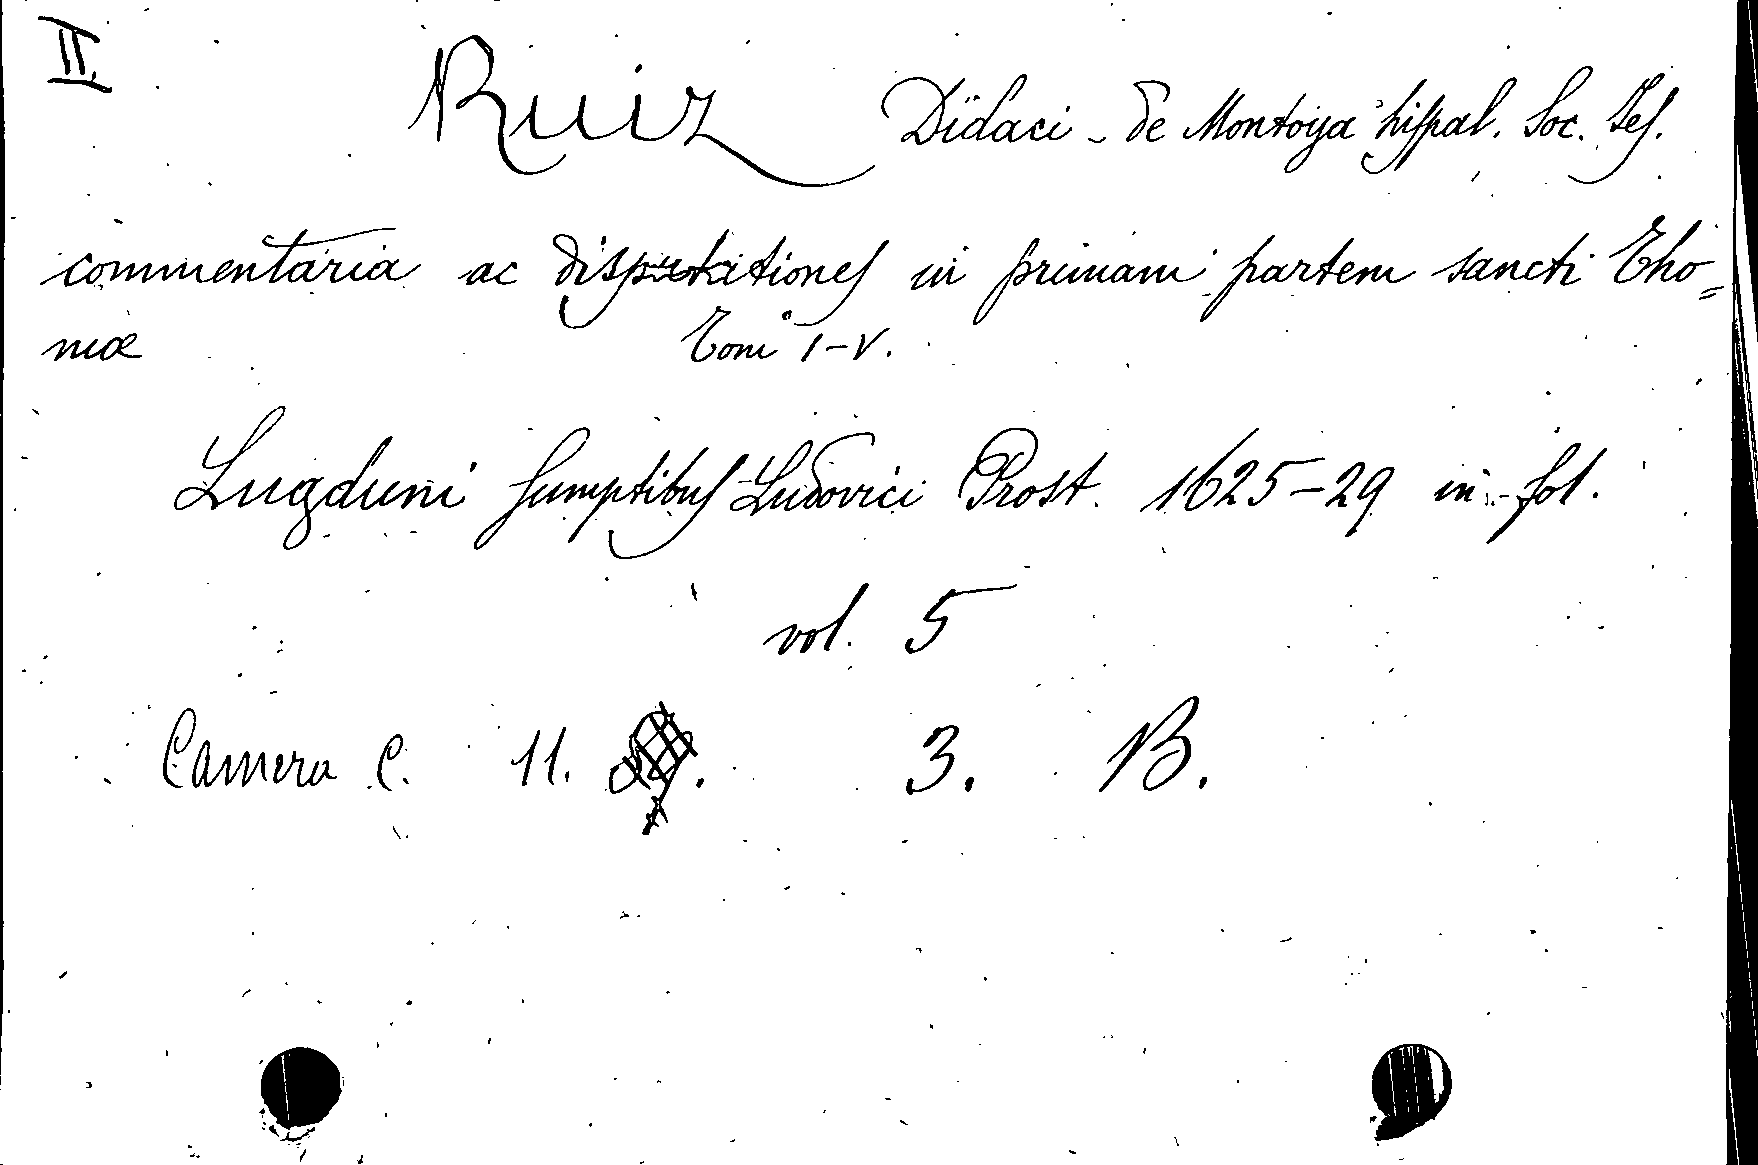 II.
Ruiz Didaci - de Montoya hispal. Soc. Jes.
commentaria ac disputationes in primam partem sancti Tho=
mæ Tomi I-V.
Lugduni sumptibus Ludovici Prost. 1625-29 in-fol.
vol. 5
Camera C. 11. 3. B.